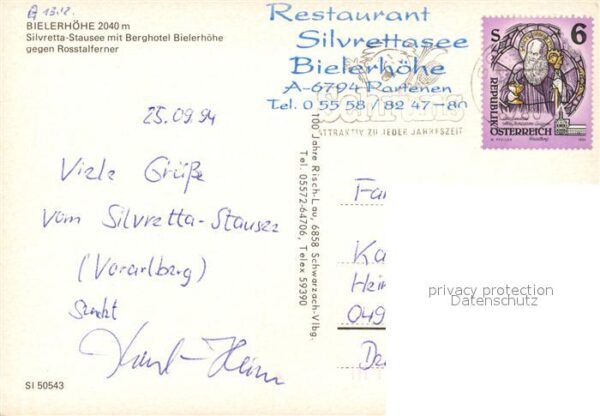 A 13.12.
BIELERHÖHE 2040 m
Silvretta-Stausee mit Berghotel Bielerhöhe
gegen Rosstalferner
Restaurant
Silvrettasee
Bielerhöhe
A-6794 Partenen
Tel. 0 55 58 / 82 47-80
Schruns
ATTRAKTIV ZU JEDER JAHRESZEIT
S 6
REPUBLIK
ÖSTERREICH
25.09.94
Viele Grüße
vom Silvretta-Stausee
(Vorarlberg)
sendet
Karl-Heinz
100 Jahre Risch-Lau, 6858 Schwarzach-Vlbg.
Tel. 05572-64706, Telex 59390
Fa
Ka
Hei
049
privacy protection
Datenschutz
SI 50543